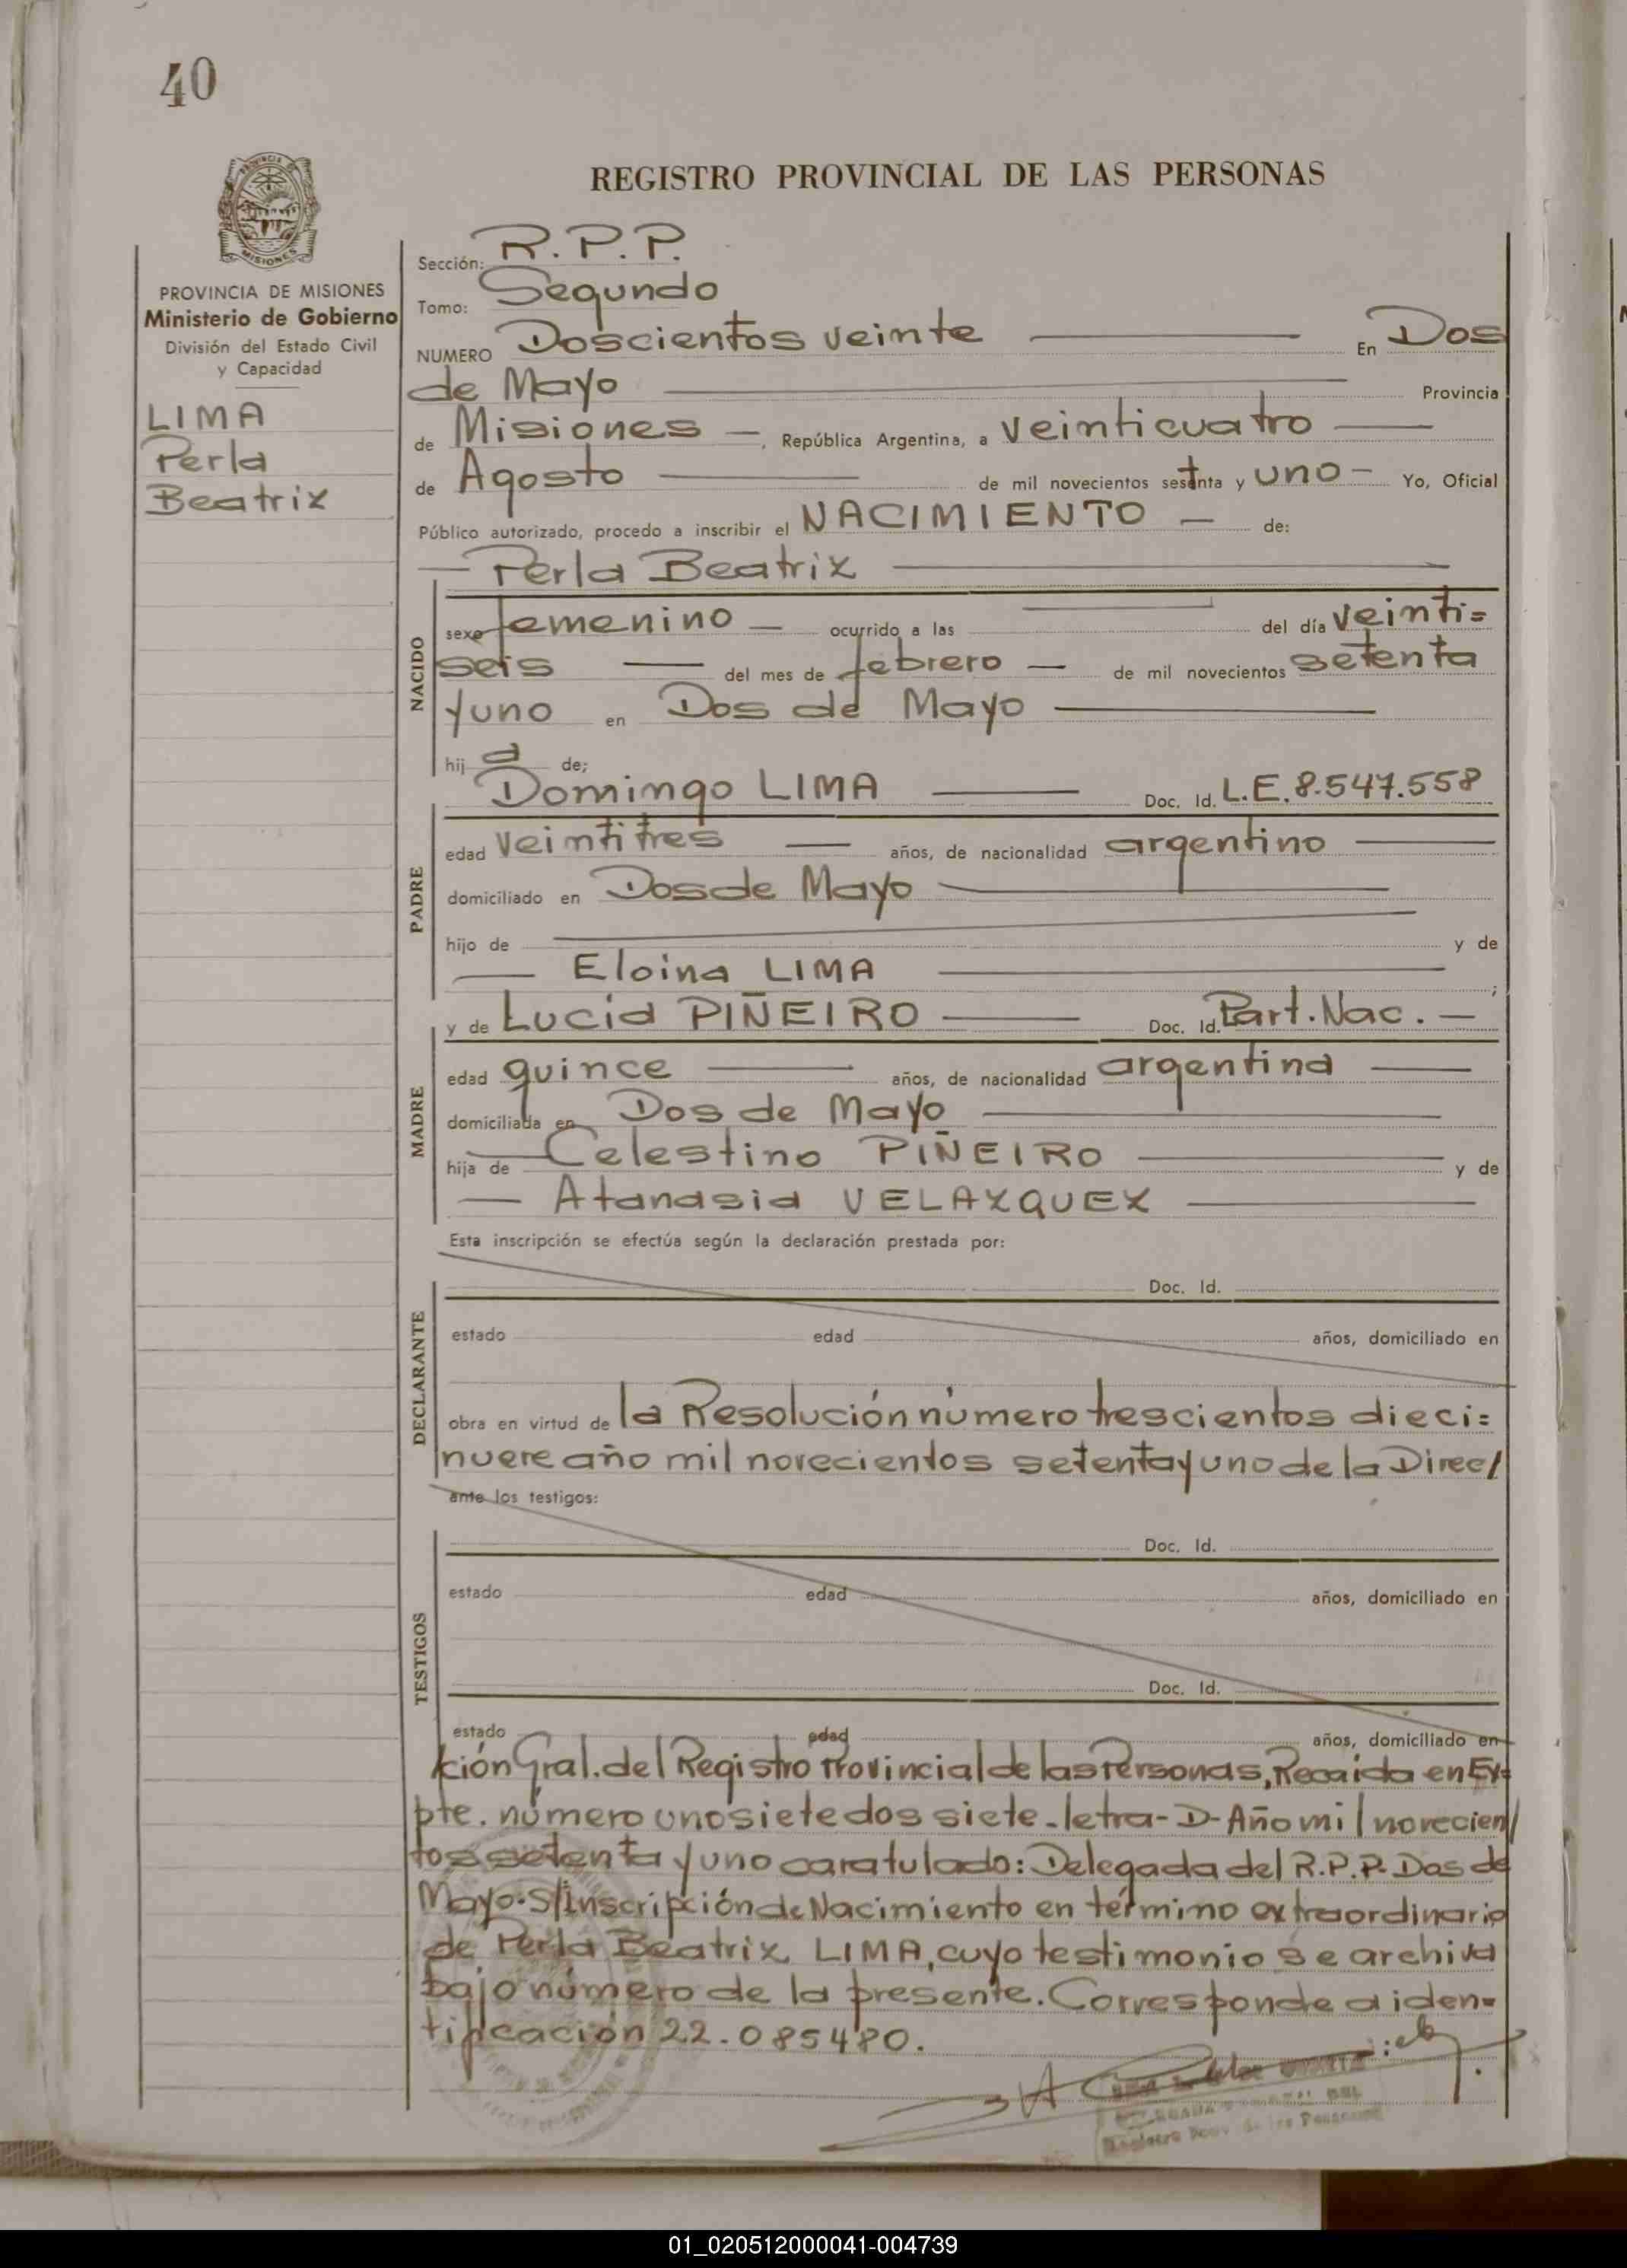 40
REGISTRO PROVINCIAL DE LAS PERSONAS
MISIONES
PROVINCIA DE MISIONES
Ministerio de Gobierno
División del Estado Civil
y Capacidad
LIMA
Perla
Beatriz
Sección: R.P.P.
Tomo: Segundo
NUMERO Doscientos veinte En Dos
de Mayo Provincia
de Misiones —, República Argentina, a veinticuatro
de Agosto de mil novecientos setenta y uno — Yo, Oficial
Público autorizado, procedo a inscribir el NACIMIENTO — de:
— Perla Beatriz —
NACIDO
sexo femenino — ocurrido a las — del día veinti=
seis — del mes de febrero — de mil novecientos setenta
y uno en Dos de Mayo —
hij a de;
Domingo LIMA — Doc. Id. L.E. 8.547.558
PADRE
edad veintitres — años, de nacionalidad argentino —
domiciliado en Dos de Mayo —
hijo de — y de
— Eloina LIMA — ;
y de Lucia PIÑEIRO — Doc. Id. Part. Nac. —
MADRE
edad quince — años, de nacionalidad argentina —
domiciliada en Dos de Mayo —
hija de — Celestino PIÑEIRO — y de
— Atanasia VELAZQUEZ —
Esta inscripción se efectúa según la declaración prestada por:
DECLARANTE
Doc. Id.
estado edad años, domiciliado en
obra en virtud de la Resolución número trescientos dieci=
nueve año mil novecientos setenta y uno de la Direc/
ante los testigos:
TESTIGOS
Doc. Id.
estado edad años, domiciliado en
Doc. Id.
estado edad años, domiciliado en
ción Gral. del Registro Provincial de las Personas, Recaída en Ex=
pte. número uno siete dos siete - letra - D - Año mil novecien/
tos setenta y uno caratulado: Delegada del R.P.P. Dos de
Mayo. S/Inscripción de Nacimiento en término extraordinario
de Perla Beatriz LIMA, cuyo testimonio se archiva
bajo número de la presente. Corresponde a iden=
tificación 22.085480.
Registro Prov. de las Personas
01_020512000041-004739